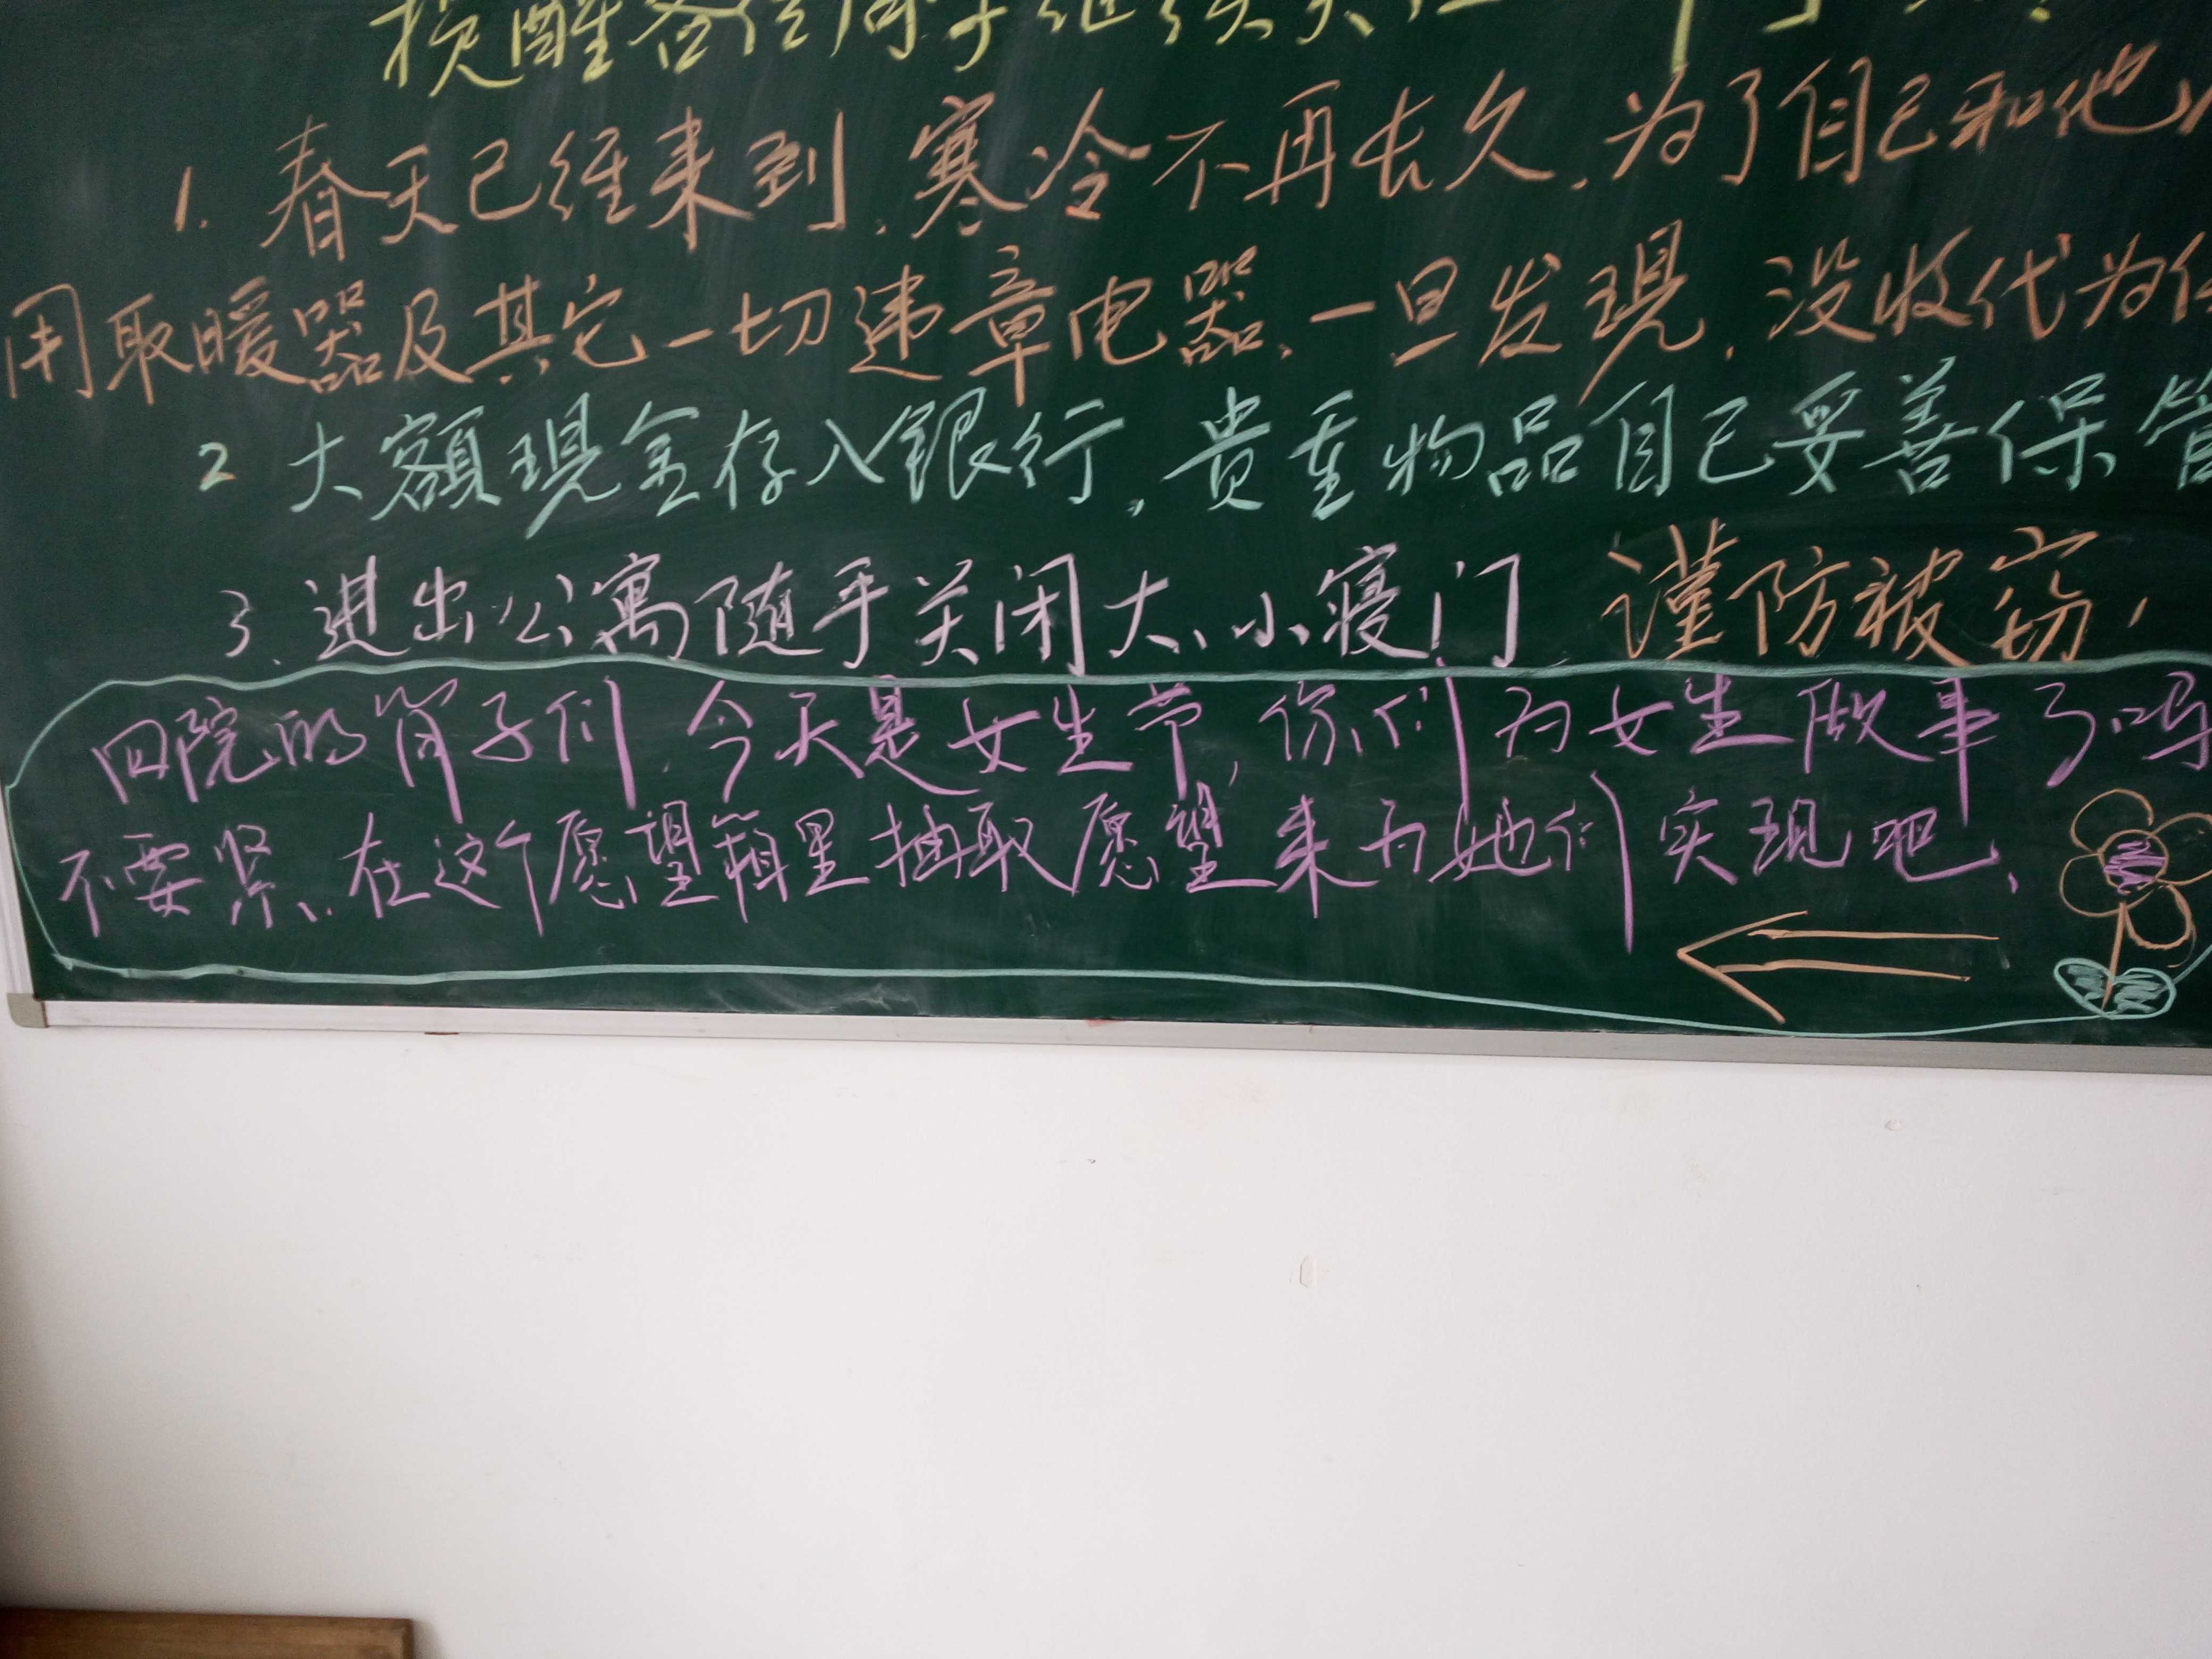 提醒各位同学继续关注
1. 春天已经来到,寒冷不再长久,为了自己和他
用取暖器及其它一切违章电器,一旦发现,没收代为
2 大额现金存入银行,贵重物品自己妥善保管
3、进出公寓随手关闭大、小寝门 谨防被窃,
四院的肖子们,今天是女生节,你们为女生做事了吗
不要紧,在这个愿望箱里抽取愿望来为她们实现吧,